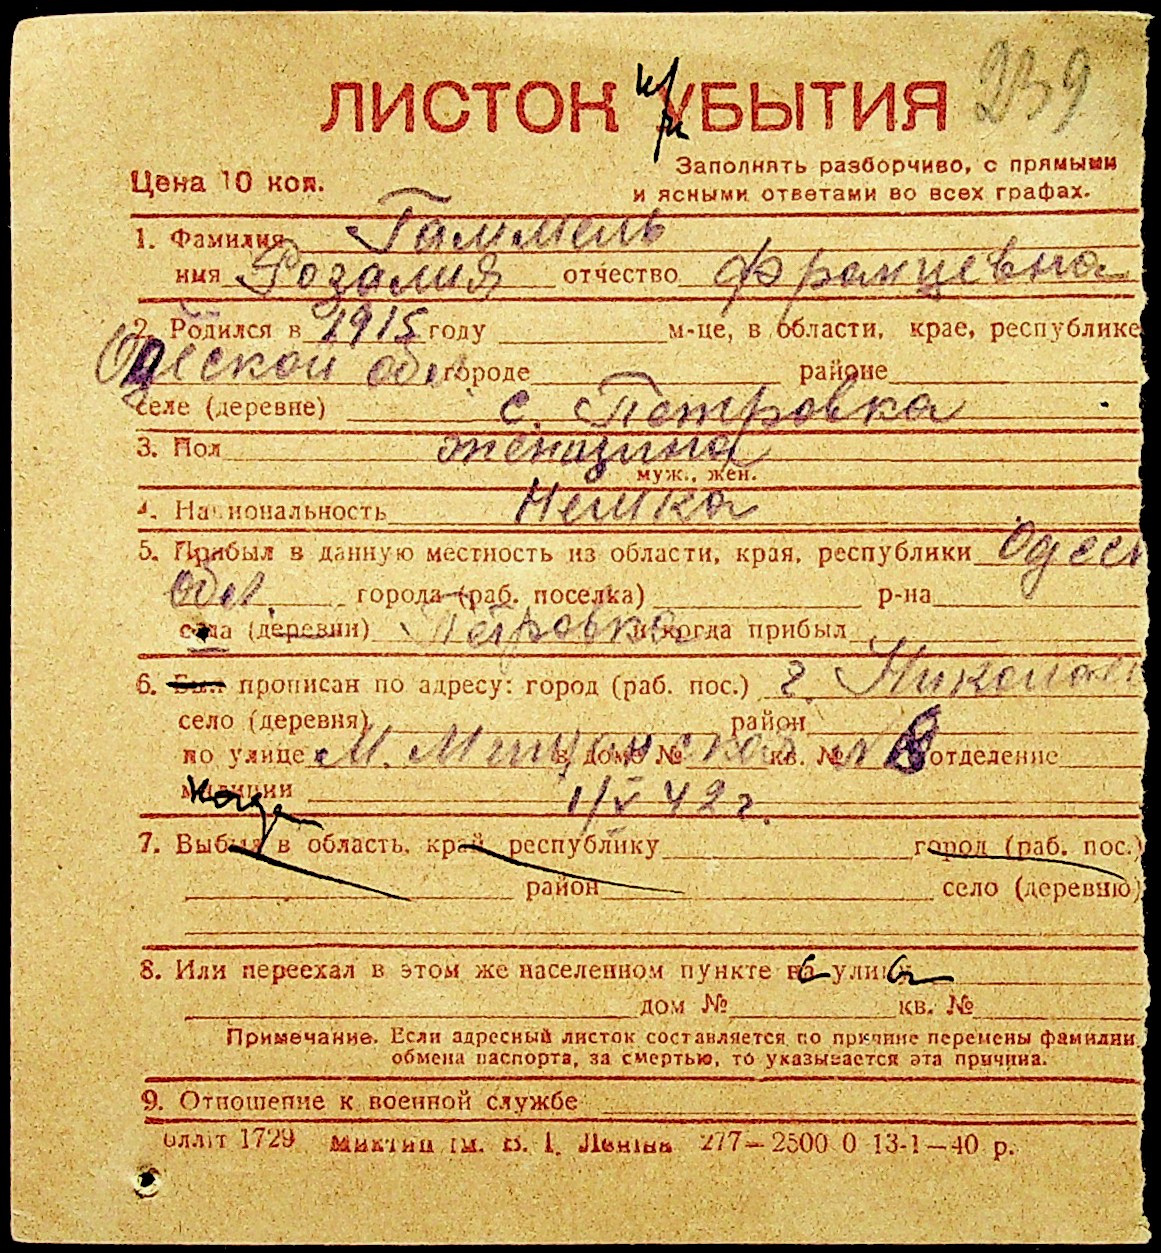 239
ЛИСТОК УБЫТИЯ
Цена 10 коп.
Заполнять разборчиво, с прямыми
и ясными ответами во всех графах.
1. Фамилия Гаммель
имя Розалия отчество Францевна
2. Родился в 1915 году м-це, в области, крае, республике
Одесской обл. городе районе
селе (деревне) с. Петровка
3. Пол женщина
муж., жен.
4. Национальность Немка
5. Прибыл в данную местность из области, края, республики Одесск
обл. города (раб. поселка) р-на
села (деревни) Петровка и когда прибыл
6. Был прописан по адресу: город (раб. пос.) г. Николаев
село (деревня) район
по улице М. Мещанская в доме № кв. № № 8 отделение
милиции 1/V 42 г.
когда
7. Выбыл в область, край, республику город (раб. пос.)
район село (деревню)
8. Или переехал в этом же населенном пункте на улицу
дом № кв. №
Примечание. Если адресный листок составляется по причине перемены фамилии
обмена паспорта, за смертью, то указывается эта причина.
9. Отношение к военной службе
Обллiт 1729 Миктип iм. В. I. Ленiна 277—2500 0 13-1—40 р.